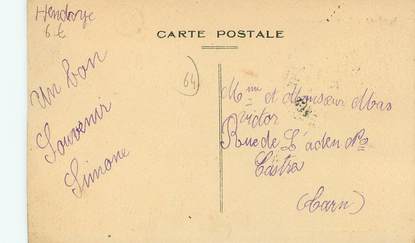 Hendaye
6€
CARTE POSTALE
64
Un bon
Souvenir
Simone
Mme et Monsieur Mas
Victor
Rue de L'aden No
Castres
(Tarn)